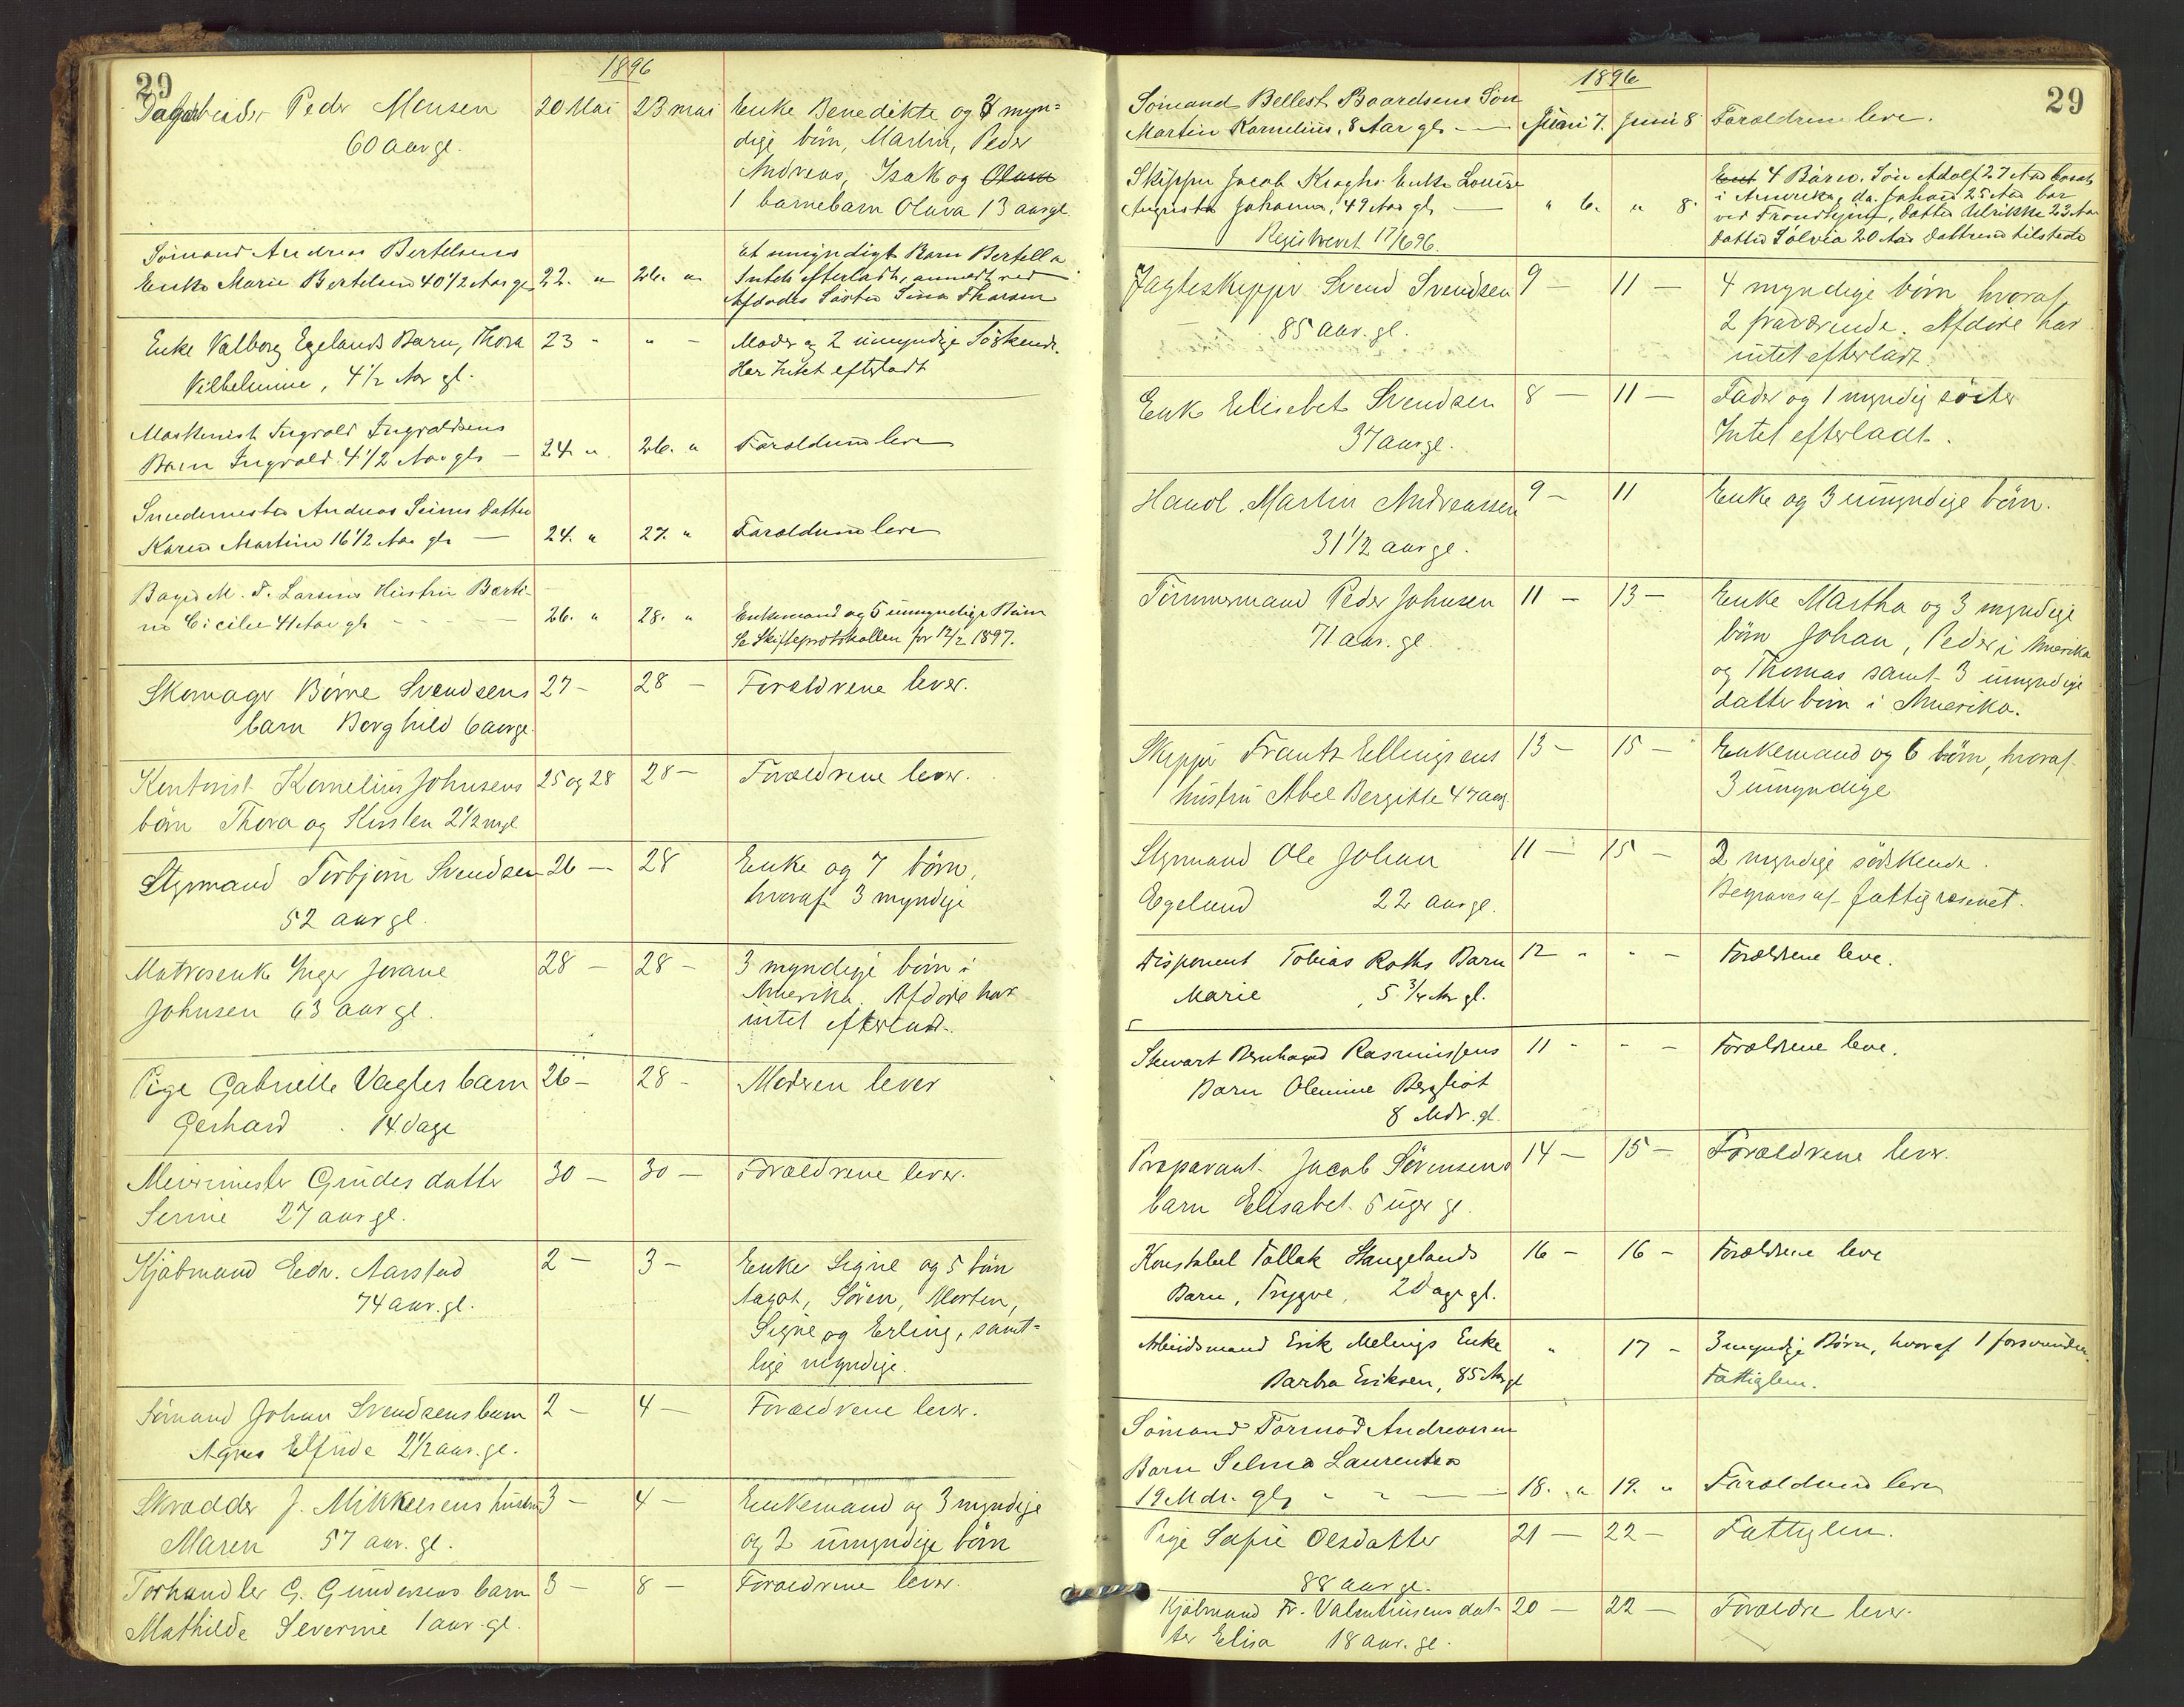 29
1896
Dagarbeider Peder Monsen 20 Mai 23 mai Enke Benedikte og 3 myn=
60 aar gl. dige börn, Martin, Peder
Andreas, Isak og Olava
1 barnebarn Olava 13 aar gl.
Sömand Andreas Bertelsens Et umyndigt Barn Bertella
Enke Marie Bertelsen 40 1/2 Aar gl 22. " 26. " Intet efterladt, anmeldt ved
Afdødes Söster Sina Thorsen
Enke Valborg Egelands Barn, Thora 23 " " - Moder og 2 umyndige Söskende.
Vilhelmine, 4 1/2 Aar gl. Har Intet efterladt
Maskinist Ingvald Ingvaldsens
Barn Ingvald 4 1/2 Aar gl. - 24. " 26. " Forældrene lever
Smedemester Andreas Seims Datter
Karen Martine 16 1/2 Aar gl. - 24. " 27. " Forældrene lever
Bager M. T. Larsens Hustru Berti-
ne Cicilie 41 Aar gl. - - - 26. " 28. " Enkemand og 5 umyndige Börn
Se Skifteprotokollen for 12/2 1897.
Skomager Börre Svendsens 27 - 28 - Forældrene lever.
barn Borghild 6 aar gl.
Kontorist Kornelius Johnsens 25 og 28 28 - Forældrene lever.
börn Thora og Kirsten 2 1/2 m gl.
Styrmand Torbjörn Svendsen 26 - 28 Enke og 7 börn,
52 aar gl. hvoraf 3 myndige
Matrosenke Inger Jorane 28 - 28 - 3 myndige börn i
Johnsen 63 aar gl. Amerika. Afdöde har
intet efterladt.
Pige Gabrielle Vagles barn 26 - 28 - Moderen lever
Gerhard 14 dage
Meierimester Grudes datter 30 - 30 - Forældrene lever.
Serine 27 aar gl.
Kjöbmand Edv. Aarstad 2 - 3 - Enke Signe og 5 börn
74 aar gl. Aagot, Sören, Morten,
Signe og Erling, samt=
lige myndige.
Sömand Johan Svendsens barn 2 - 4 - Forældrene lever.
Agnes Elfride 2 1/2 aar gl.
Skrædder J. Mikkelsens hustru 3 - 4 - Enkemand og 3 myndige
Maren 57 aar gl. og 2 umyndige börn
Torhandler G. Gundersens barn 3 - 8 - Forældrene lever.
Mathilde Severine 1 aar gl.
1896
29
Sömand Bellest Baardsens Sön
Martin Kornelius, 8 Aar gl. - Juni 7. Juni 8 Forældrene leve.
Skipper Jacob Kraghs Enke Louise 4 Börn. Sön Adolf 27 Aar bosat
Augusta Johanna, 49 Aar gl. - " 6. " 8. i Amerika, do. Johan 25 Aar bor
ved Trondhjem, Datter Ulrikke 23 Aar
Registreret 17/6 96. Datter Sølvia 20 Aar Döttrene tilstede
Jagteskipper Svend Svendsen 9 - 11 - 4 myndige börn, hvoraf
85 aar gl. 2 fraværende. Afdöde har
intet efterladt.
Enke Elisebet Svendsen 8 - 11 - Fader og 1 myndig söster
37 aar gl. Intet efterladt.
Handl. Martin Andreassen 9 - 11 Enke og 3 umyndige börn.
31 1/2 aar gl.
Tömmermand Peder Johnsen 11 - 13 - Enke Martha og 3 myndige
71 aar gl. börn Johan, Peder i Amerika
og Thomas samt 3 umyndige
datterbörn i Amerika.
Skipper Frantz Ellingsens 13 - 15 - Enkemand og 6 börn, hvoraf
hustru Abel Bergitte 47 aar gl. 3 umyndige
Styrmand Ole Johan 11 - 15 - 2 myndige södskende.
Egelund 22 aar gl. Begraves af Fattigvæsenet.
Disponent Tobias Roths Barn 12 " " - Forældrene leve.
Marie, 5 3/4 Aar gl.
Stewart Bernhard Rasmussens 11 " " - Forældrene leve.
Barn Olemine Bergliot
8 Mdr. gl.
Præparant Jacob Sörensens 14 - 15 - Forældrene lever.
barn Elisabet 5 uger gl.
Konstabel Tollak Stangelands 16 - 16 - Forældrene leve
Barn, Trygve, 2 Dage gl.
Arbeidsmand Erik Melings Enke " 17 - 3 myndige Börn, hvoraf 1 forsvunden.
Barbra Eriksen, 85 Aar gl Fattiglem.
Sömand Tormod Andreassen
Barn Selma Laurentza
19 Mdr. gl. " " - 18. " 19. " Forældrene lever
Pige Sofie Olsdatter 21 - 22 - Fattiglem.
88 aar gl.
Kjöbmand Fr. Valentinsens dat- 20 - 22 - Forældre lever.
ter Elisa 18 aar gl.